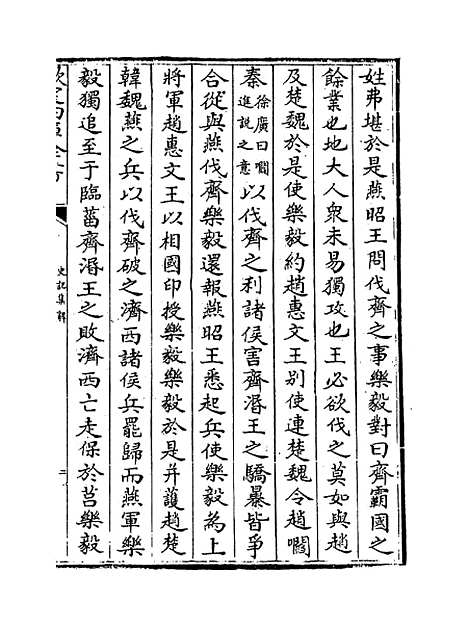 姓弗堪於是燕昭王問伐齊之事樂毅對曰齊霸國之
餘業也地大人衆未易獨攻也王必欲伐之莫如與趙
及楚魏於是使樂毅約趙惠文王别使連楚魏令趙嚪
秦徐廣曰嚪進說之意以伐齊之利諸侯害齊湣王之驕暴皆爭
合從與燕伐齊樂毅還報燕昭王悉起兵使樂毅為上
將軍趙惠文王以相國印授樂毅樂毅於是并護趙楚
韓魏燕之兵以伐齊破之濟西諸侯兵罷歸而燕軍樂
毅獨追至于臨菑齊湣王之敗濟西亡走保於莒樂毅
欽定四庫全書
史記集解
二